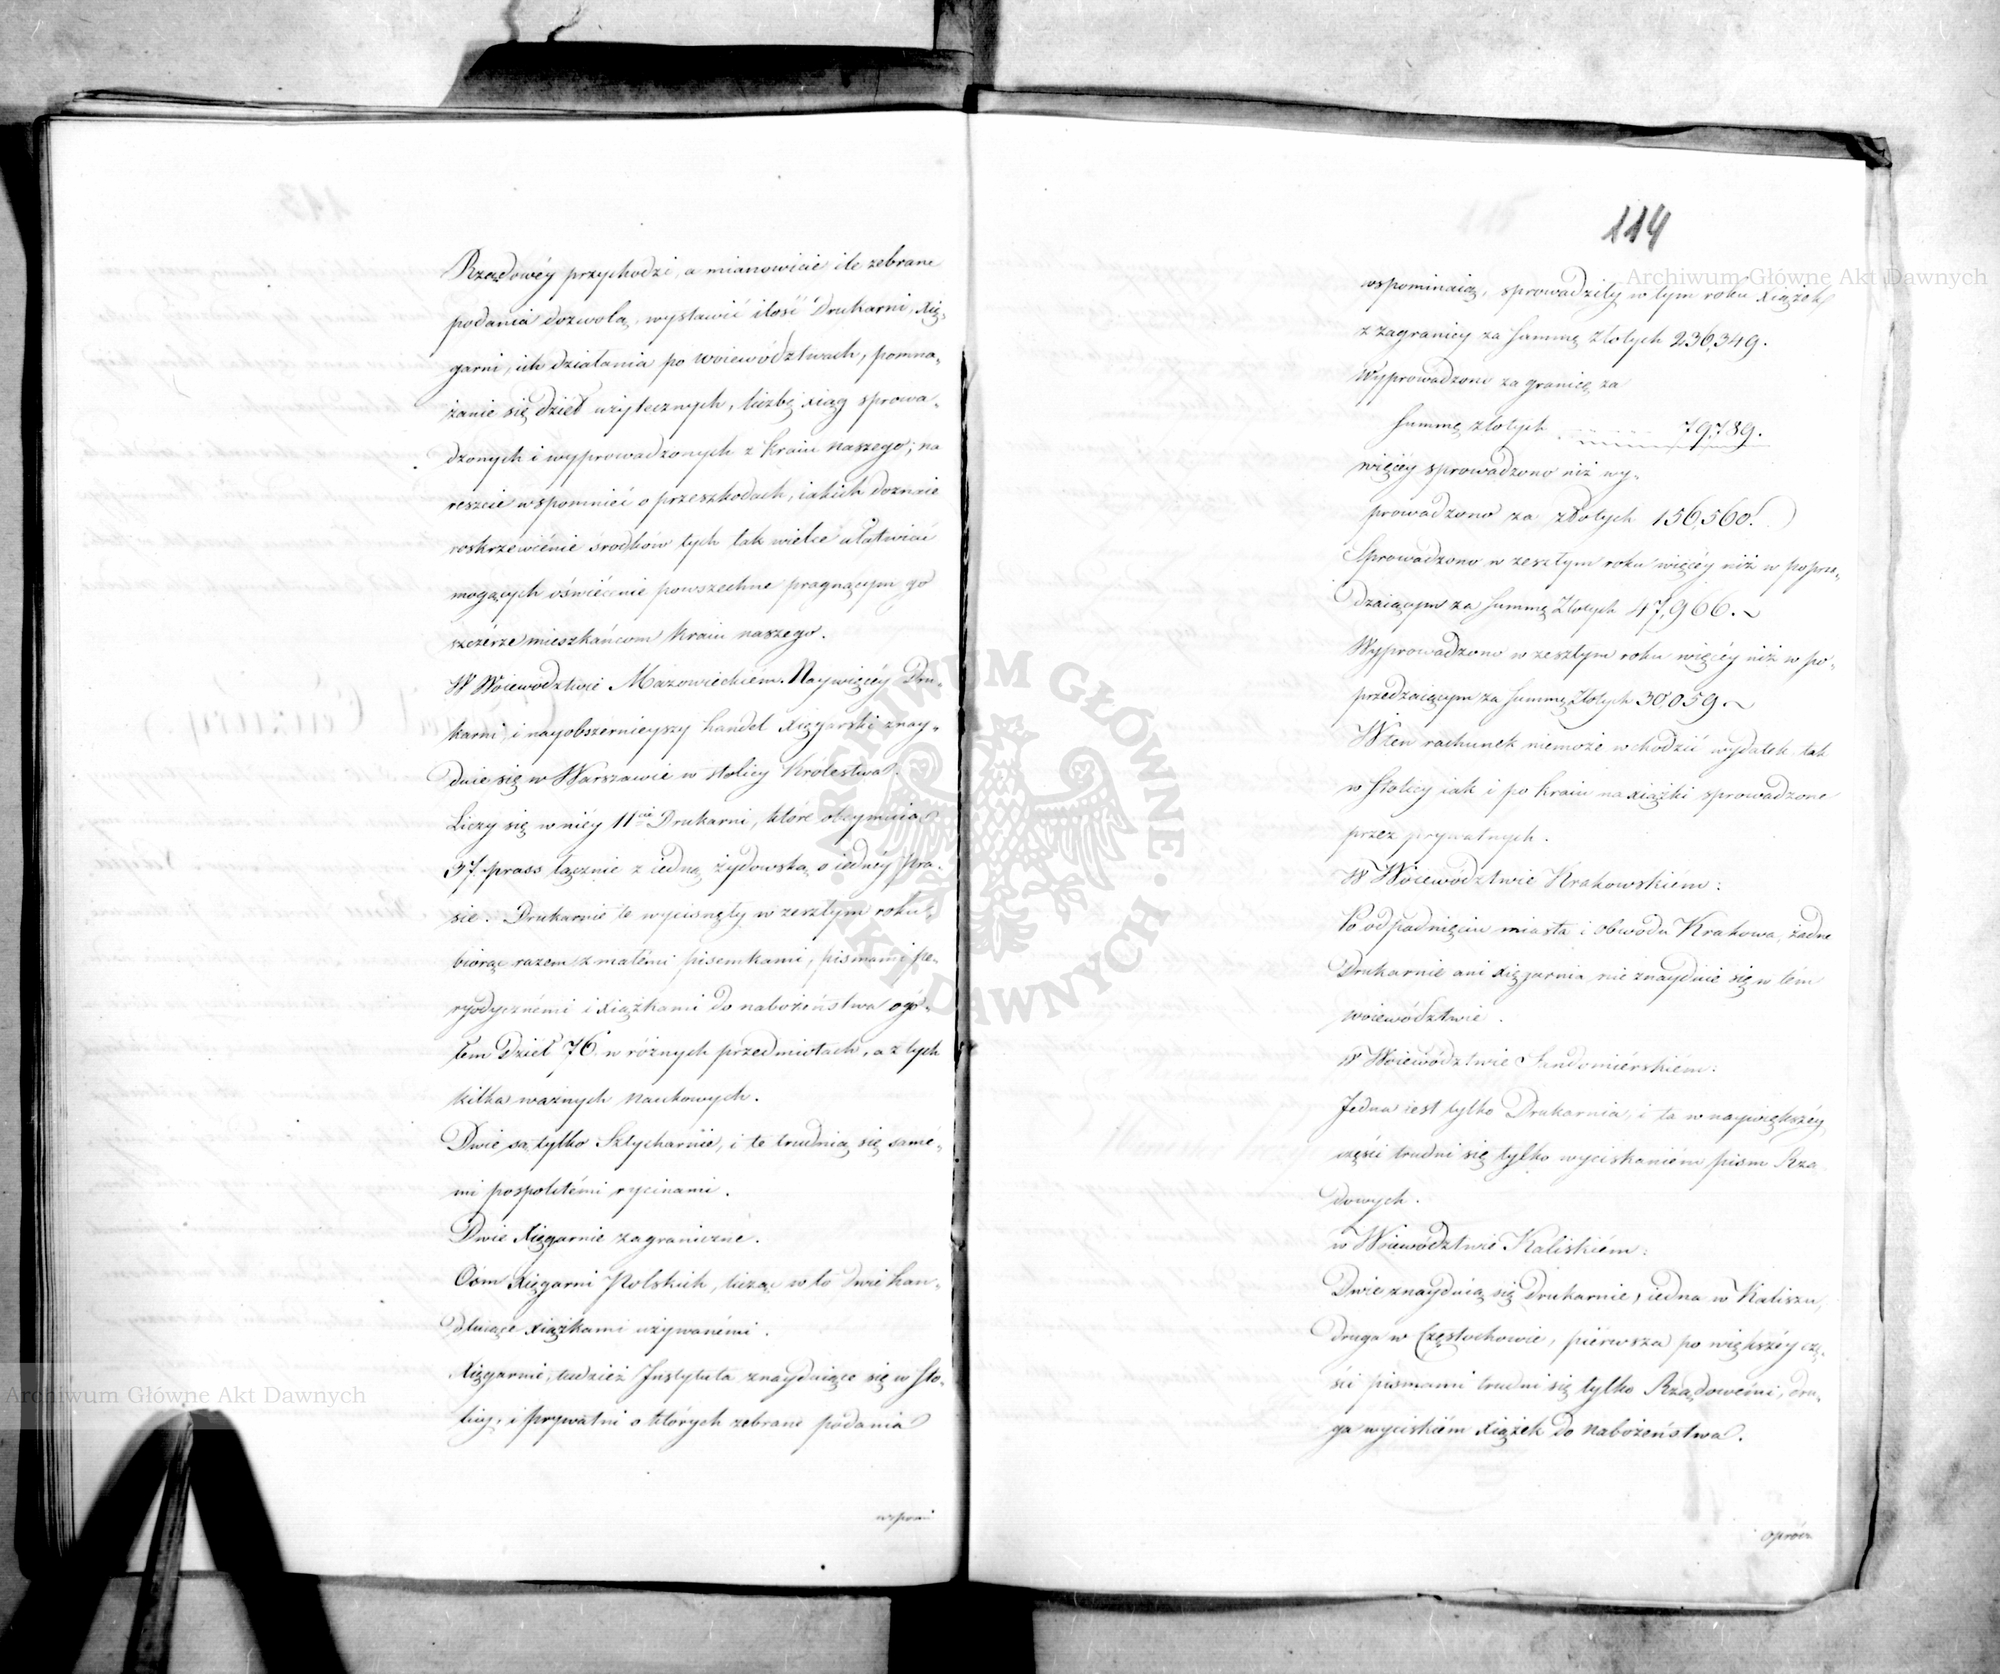 Rządowéy przychodzi, a mianowicie ile zebrane
podania dozwolą, wystawić ilość Drukarni, Xię-
garni, ich działania po woiewództwach, pomna-
żanie się dzieł użytecznych, liczbę xiąg sprowa-
dzonych i wyprowadzonych z kraiu naszego; na
reszcie wspomnieć o przeszkodach, iakich doznaie
roskrzewienie środków tych tak wielce ułatwiać
mogących oświécenie powszechne pragnącym go
szczérze mieszkańcom kraiu naszego.
W Woiewództwie Mazowieckiem. Naywięcéy Dru-
karni, i nayobszernieyszy handel xięgarski znay-
duie się w Warszawie w stolicy Królestwa.
Liczy się w niéy 11cie Drukarni, które obeymuią
37. prass łącznie z iedną żydowską o iednéy pra-
sie. Drukarnie te wycisnęły w zeszłym roku,
biorąc razem z małémi pisemkami, pismami pe-
ryodycznémi i xiążkami do nabożeństwa ogó-
łem Dzieł 76. w różnych przedmiotach, a z tych
kilka ważnych naukowych.
Dwie są tylko Sztycharnie, i te trudnią się samé-
mi pospolitémi rycinami.
Dwie Xięgarnie zagraniczne.
Ośm Xięgarni Polskich, licząc w to dwie han-
dluiące xiążkami używanémi.
Xięgarnie, tudzież Instytuta znayduiące się w sto-
licy, i prywatni o których zebrane podania
wspomi
114
wspominaią, sprowadziły w tym roku xiążek
z zagranicy za summę złotych 236,349.
Wyprowadzono za granicę za
summę złotych 79,789.
więcéy sprowadzono niż wy-
prowadzono za złotych 156,560.
Sprowadzono w zeszłym roku więcéy niż w poprze-
dzaiącym za summę złotych 47,966.
Wyprowadzono w zeszłym roku więcéy niż w po-
przedzaiącym za summę złotych 30,059.
W ten rachunek niemoże wchodzić wydatek tak
w stolicy iak i po kraiu na xiążki sprowadzone
przez prywatnych.
W Woiewództwie Krakowskiém:
Po odpadnięciu miasta i obwodu Krakowa, żadne
Drukarnie ani xięgarnia nie znayduie się w tém
woiewództwie.
W Woiewództwie Sandomiérskiem:
Jedna iest tylko Drukarnia, i ta w naywiększéy
części trudni się tylko wyciskaniém pism Rzą
dowych.
w Woiewództwie Kaliskiém:
Dwie znayduią się Drukarnie, iedna w Kaliszu,
druga w Częstochowie, piérwsza po większéy czę-
ści pismami trudni się tylko Rządowémi, dru-
ga wyciskiém xiążek do nabożeństwa.
oprócz
Archiwum Główne Akt Dawnych
Archiwum Główne Akt Dawnych
ARCHIWUM GŁÓWNE AKT DAWNYCH